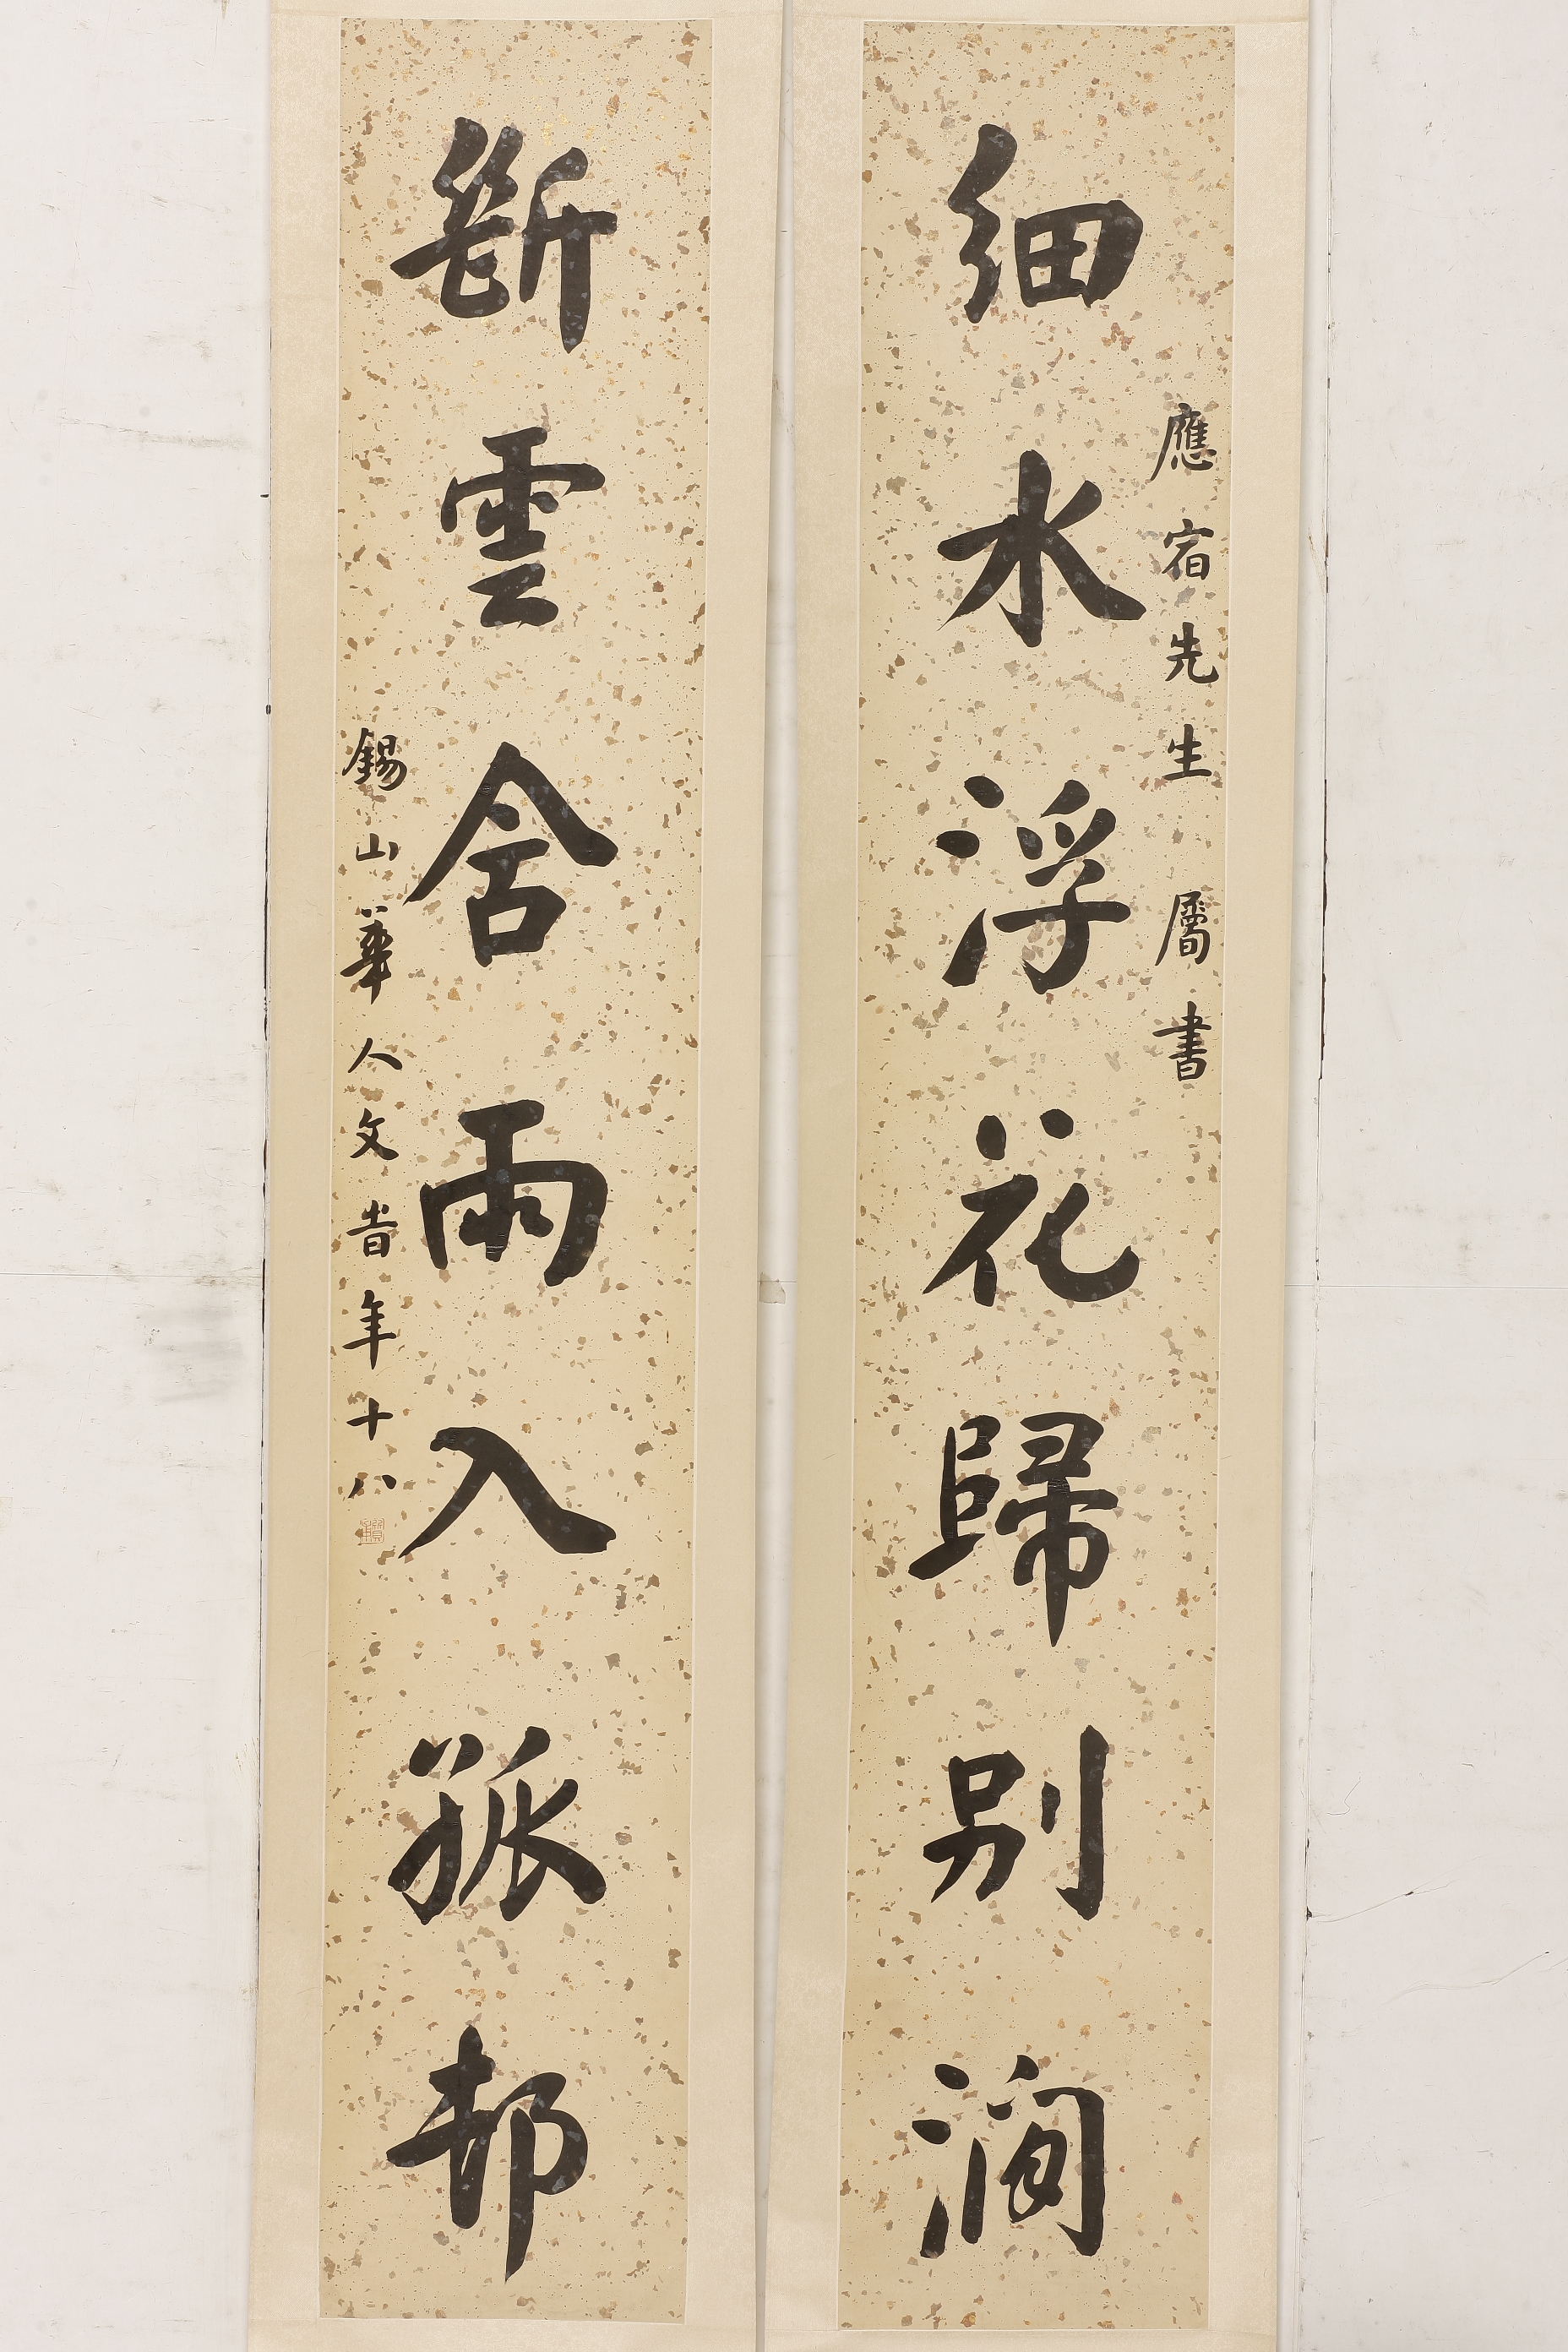 應宿先生屬書
細水浮花歸別澗
斷雲含雨入孤邨
錫山華人文旹年十八